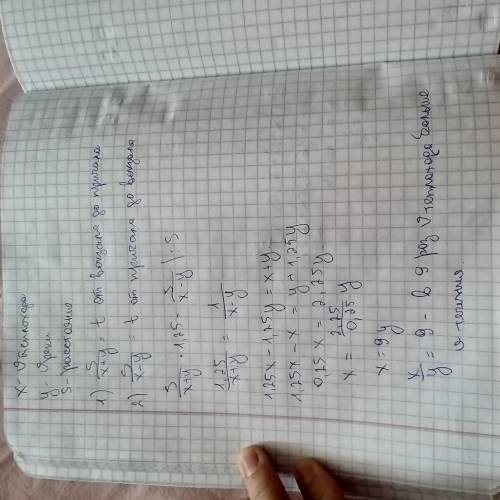 x - V теплохода
y - V реки
S - расстояние
1) S/(x+y) = t от вокзала до причала
2) S/(x-y) = t от причала до вокзала
S/(x+y) · 1,25 = S/(x-y) | : S
1,25/(x+y) = 1/(x-y)
1,25x - 1,25y = x+y
1,25x - x = y + 1,25y
0,25x = 2,25y
x = 2,25/0,25 y
x = 9y
x/y = 9 - в 9 раз V теплохода больше
V течения.